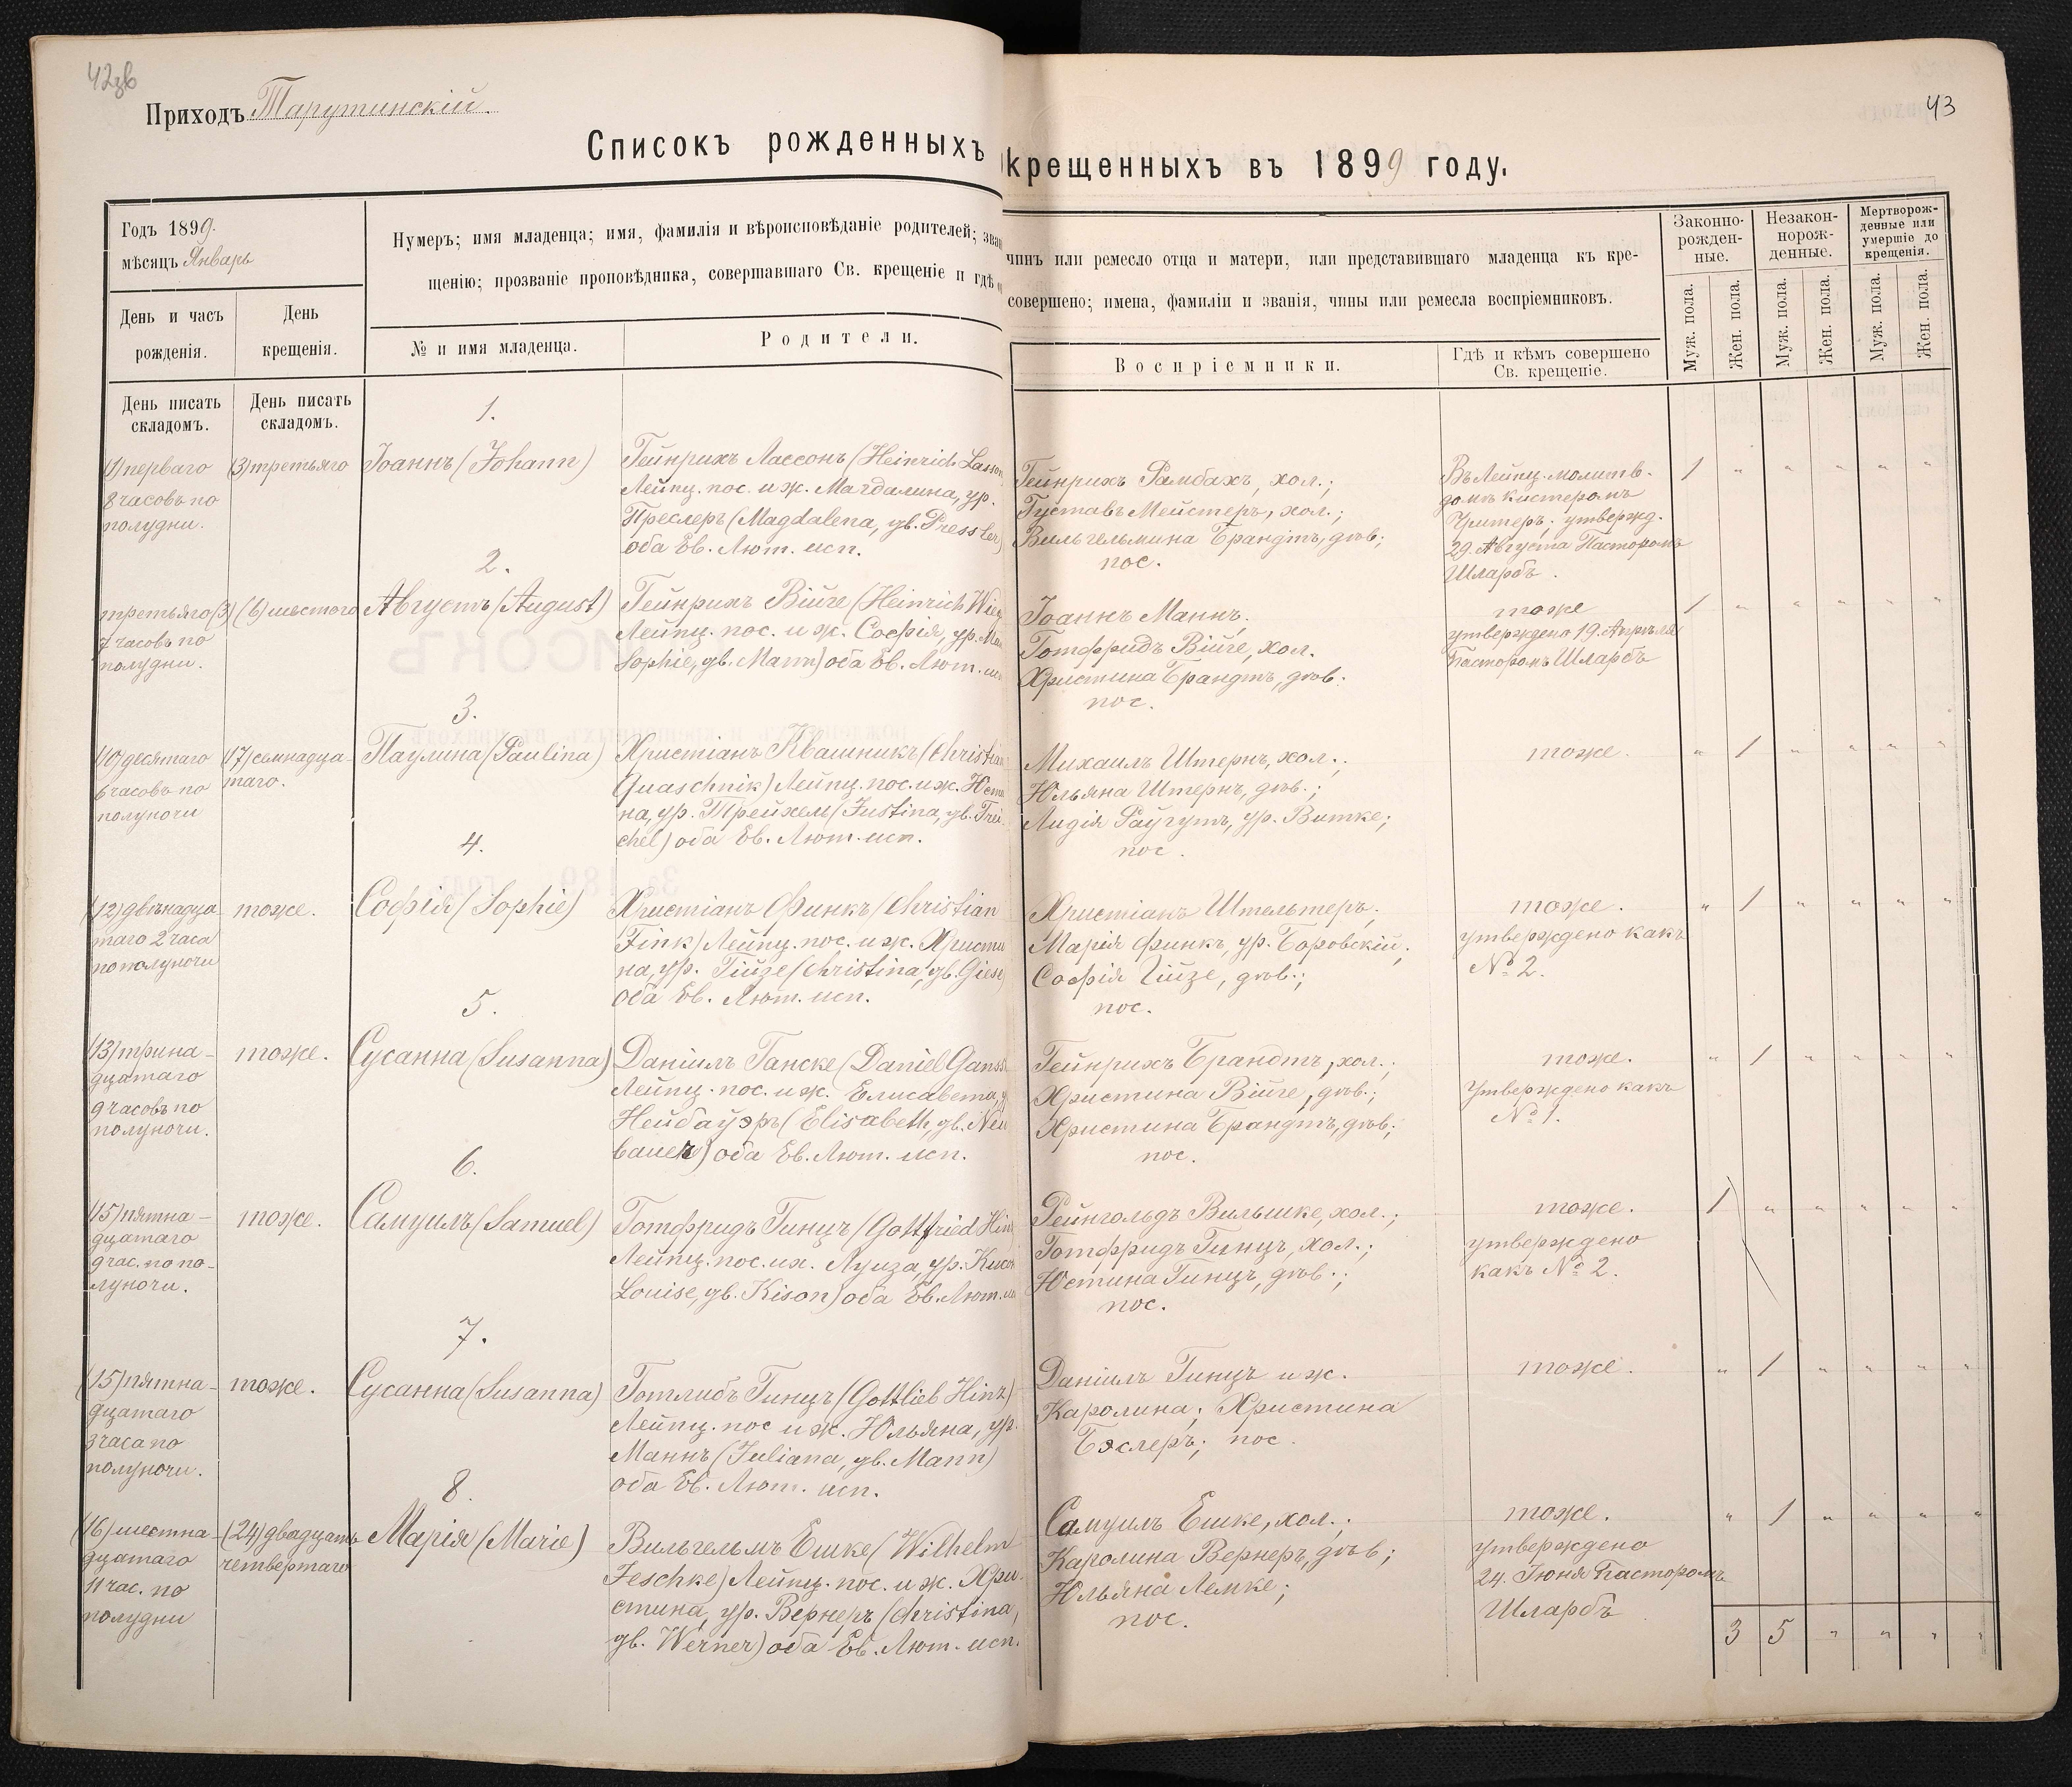 42зв
43
Приходъ Тарутинскій.
Списокъ рожденныхъ
крещенныхъ въ 1899 году.
Годъ 1899.
мѣсяцъ Январь
Нумеръ; имя младенца; имя, фамилія и вѣроисповѣданіе родителей; зва
щенію; прозваніе проповѣдника, совершавшаго Св. крещеніе и гдѣ
чинъ или ремесло отца и матери, или представившаго младенца къ кре-
совершено; имена, фамиліи и званія, чины или ремесла воспріемниковъ.
Законно-
рожден-
ные.
Незакон-
норож-
денные.
Мертворож-
денные или
умершіе до
крещенія.
Муж. пола.
Жен. пола.
Муж. пола.
Жен. пола.
Муж. пола.
Жен. пола.
День и часъ
рожденія.
День
крещенія.
№ и имя младенца.
Родители.
Воспріемники.
Гдѣ и кѣмъ совершено
Св. крещеніе.
День писать
складомъ.
День писать
складомъ.
1.
(1) перваго
8 часовъ по
полудни.
(3) третьяго
Іоаннъ (Johann)
Гейнрихъ Лассонъ (Heinrich Lasson
Лейпц. пос. и ж. Магдалина, ур.
Преслеръ (Magdalena, gb. Pressler)
оба Ев. Лют. исп.
Гейнрихъ Рамбахъ, хол.;
Густавъ Мейстеръ, хол.;
Вильгельмина Брандтъ, дѣв;
пос.
Въ Лейпц. молитв.
домѣ кистеромъ
утвержд.
29. Августа Пасторомъ
Шларбъ.
1 " " " " "
2.
третьяго (3)
7 часовъ по
полудни.
(6) шестого
Августъ (August)
Гейнрихъ Війге (Heinrich Wieg
Лейпц. пос. и ж. Софія, ур. Ман
Sophie, gb. Mann) оба Ев. Лют. ис
Іоаннъ Маннъ;
Готфридъ Війге, хол.
Христина Брандтъ, дѣв.
пос.
тоже
утверждено 19. Апрѣля
Пасторомъ Шларбъ
1 " " " " "
3.
(10) десятаго
6 часовъ по
полуночи
(17) семнадца-
таго.
Паулина (Paulina)
Христіанъ Квашникъ (Christian
Quaschnik) Лейпц. пос. и ж. Юсти
на, ур. Трейхель (Justina, gb. Trei-
chel) оба Ев. Лют. исп.
Михаилъ Штернъ, хол.;
Юльяна Штернъ, дѣв.;
Лидія Раугутъ, ур. Витке;
пос.
тоже.
" 1 " " " "
4.
(12) двѣнадца-
таго 2 часа
по полуночи
тоже.
Софія (Sophie)
Христіанъ Финкъ (Christian
Fink) Лейпц. пос. и ж. Христи
на, ур. Гійзе (Christina, gb. Giese
оба Ев. Лют. исп.
Христіанъ Штельтеръ;
Марія Финкъ, ур. Боровскій;
Софія Гійзе, дѣв.;
пос.
тоже.
утверждено какъ
№ 2.
" 1 " " " "
5.
(13) трина-
дцатаго
9 часовъ по
полуночи.
тоже.
Сусанна (Susanna)
Даніилъ Ганске (Daniel Gansk
Лейпц. пос. и ж. Елисавета, у
Нейбауэръ (Elisabeth, gb. Neu
bauer) оба Ев. Лют. исп.
Гейнрихъ Брандтъ, хол.;
Христина Війге, дѣв.;
Христина Брандтъ, дѣв;
пос.
тоже.
Утверждено какъ
№ 1.
" 1 " " " "
6.
(15) пятна-
дцатаго
9 час. по по-
луночи.
тоже.
Самуилъ (Samuel)
Готфридъ Гинцъ (Gottfried Hinz
Лейпц. пос. и ж. Луиза, ур. Кисон
Louise, gb. Kison) оба Ев. Лют. ис
Рейнгольдъ Вильшке, хол.;
Готфридъ Гинцъ, хол.;
Юстина Гинцъ, дѣв.;
пос.
тоже.
утверждено
какъ № 2.
1 " " " " "
7.
(15) пятна-
дцатаго
3 часа по
полуночи.
тоже.
Сусанна (Susanna)
Готлибъ Гинцъ (Gottlieb Hinz)
Лейпц. пос и ж. Юльяна, ур.
Маннъ (Juliana, gb. Mann)
оба Ев. Лют. исп.
Даніилъ Гинцъ и ж.
Каролина; Христина
Бэслеръ; пос.
тоже.
" 1 " " " "
8.
(16) шестна-
дцатаго
11 час. по
полудни
(24) двадцать
четвертаго
Марія (Marie)
Вильгельмъ Ешке (Wilhelm
Jeschke) Лейпц. пос. и ж. Хри-
стина, ур. Вернеръ (Christina,
gb. Werner) оба Ев. Лют. исп.
Самуилъ Ешке, хол.;
Каролина Вернеръ, дѣв;
Юльяна Лемке;
пос.
тоже.
утверждено
24. Іюня Пасторомъ
Шларбъ
" 1 " " " "
3 5 " " " "